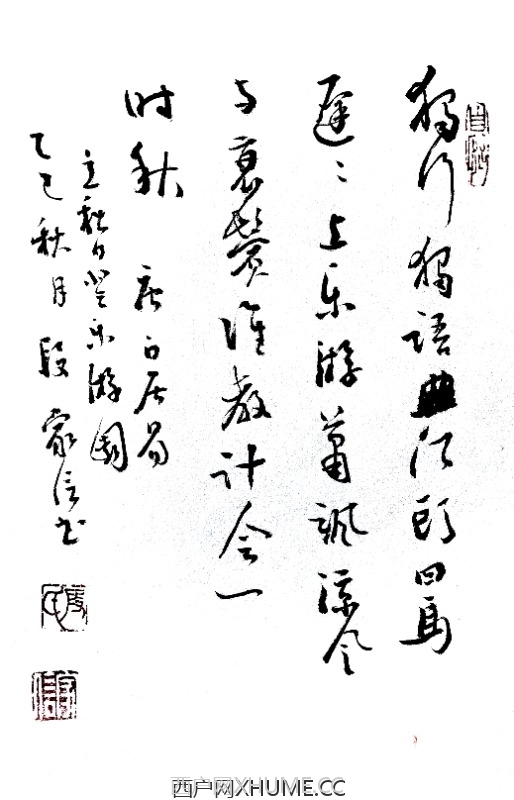 獨行獨語曲江頭回馬
遲〻上乐游蕭飒凉风
与衰鬢谁教计会一
时秋 唐白居易
立秋日登乐游園
乙巳秋月段家信书
西户网XHUME.CC